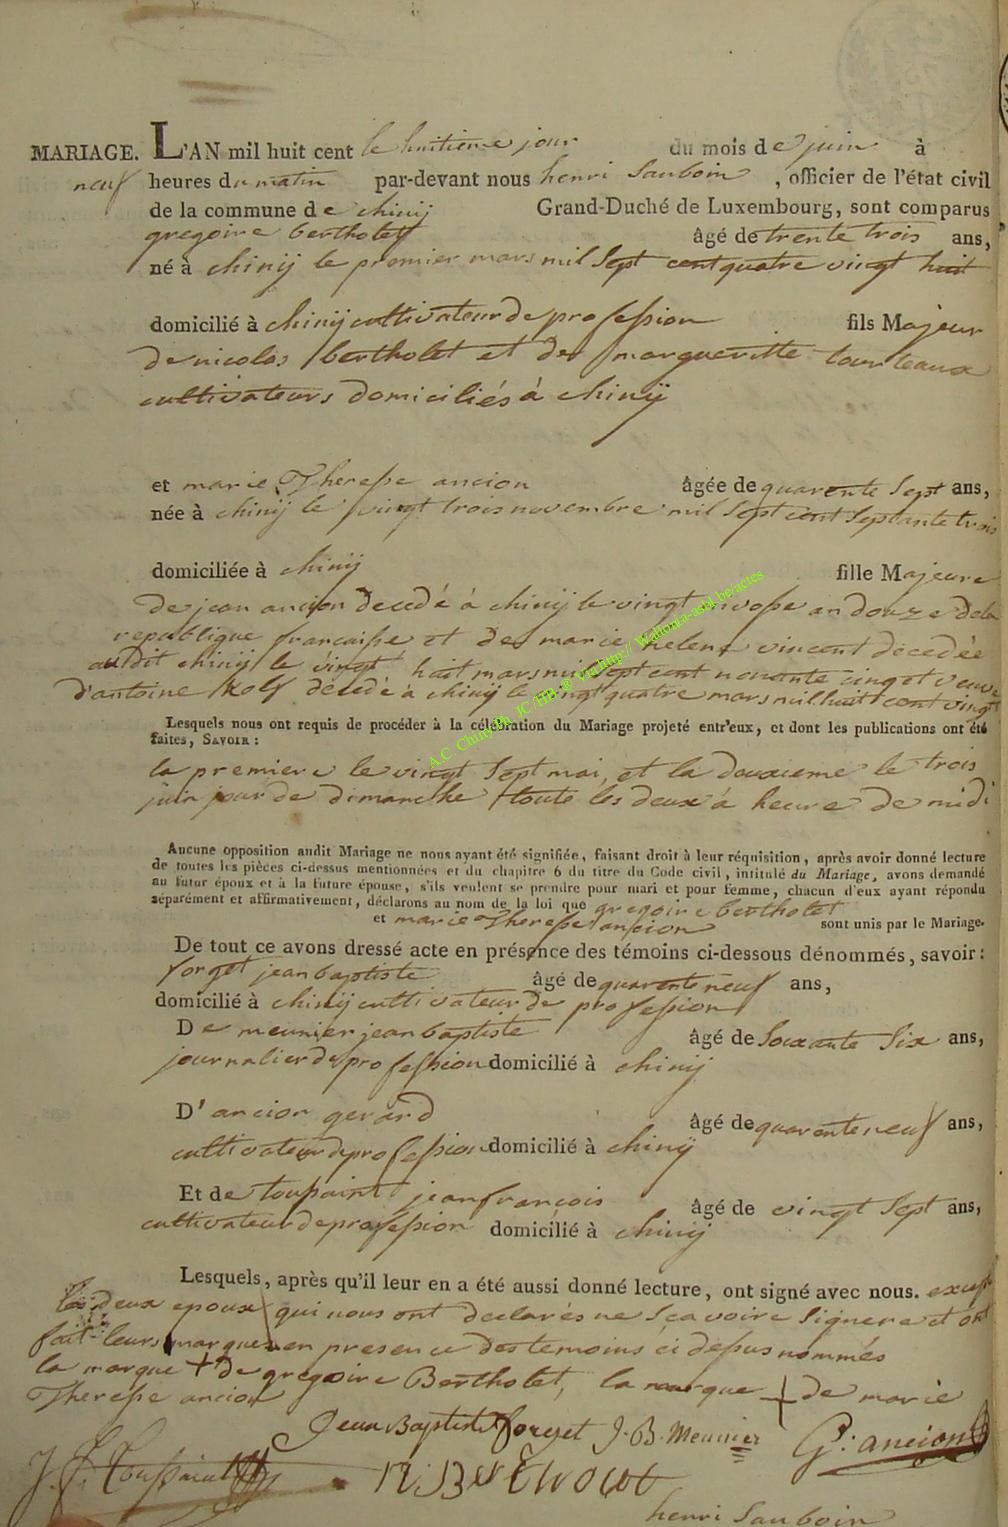 MARIAGE. L'AN mil huit cent le huitieme jour du mois de juin à
neuf heures du matin par-devant nous henri Sauboin , officier de l'état civil
de la commune de chinij Grand-Duché de Luxembourg, sont comparus
gregoire bertholet âgé de trente trois ans,
né à chinij le premier mars mil Sept cent quatre vingt huit
domicilié à chinij cultivateur de profession fils Majeur
de nicolas bertholet et de margueritte tourteaux
cultivateurs domiciliés à chinij
et marie Therese ancion âgée de quarente Sept ans,
née à chinij le vingt trois novembre mil Sept cent Septante trois
domiciliée à chinij fille Majeure
de jean ancion decedé à chinij le vingt nivose an douze de la
republique francaise et de marie helene vincent decedée
audit chinij le vingt huit mars mil sept cent nonante cinq et veuve
d'antoine Kolf décedé à chinij le vingt quatre mars mil huit cent vingt
Lesquels nous ont requis de procéder à la célébration du Mariage projeté entr'eux, et dont les publications ont été
faites, SAVOIR :
la premiere le vingt Sept mai, et la deuxieme le trois
juin jour de dimanche toute les deux à heure de midi
Aucune opposition audit Mariage ne nous ayant été signifiée, faisant droit à leur réquisition, après avoir donné lecture
de toutes les pièces ci-dessus mentionnées et du chapitre 6 du titre du Code civil, intitulé du Mariage, avons demandé
au futur époux et à la future épouse, s'ils veulent se prendre pour mari et pour femme, chacun d'eux ayant répondu
séparément et affirmativement, déclarons au nom de la loi que gregoire bertholet
et marie Therese ancion sont unis par le Mariage.
De tout ce avons dressé acte en présence des témoins ci-dessous dénommés, savoir :
forget jean baptiste âgé de quarente neuf ans,
domicilié à chinij cultivateur de profession
De meunier jean baptiste âgé de Soixante Six ans,
journalier de profession domicilié à chinij
D'ancion gerard âgé de quarente neuf ans,
cultivateur de profession domicilié à chinij
Et de toussaint jean françois âgé de vingt Sept ans,
cultivateur de profession domicilié à chinij
Lesquels, après qu'il leur en a été aussi donné lecture, ont signé avec nous. except
les deux epoux qui nous ont declarés ne Scavoire Signere et ont
fait leurs marques en presence des temoins ci dessus nommés
la marque + de gregoire Bertholet, la marque + de marie
Therese ancion
Jean Baptiste forget J. B. Meunier G: ancion
J. F. Toussaint
henri Sauboin
A.C. Chiny Ph. JC /HB. @ Via http:// Wallonia-asbl.be/actes